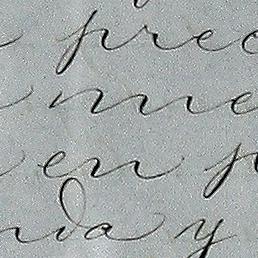 prec
me
en p
da y